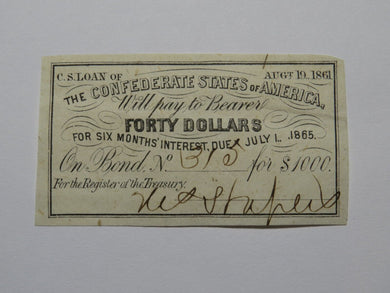 C.S. LOAN OF AUGT. 19. 1861
THE CONFEDERATE STATES OF AMERICA,
Will pay to Bearer
FORTY DOLLARS
FOR SIX MONTHS' INTEREST, DUE JULY 1., 1865.
On Bond No. 315 for $1000.
For the Register of the Treasury.